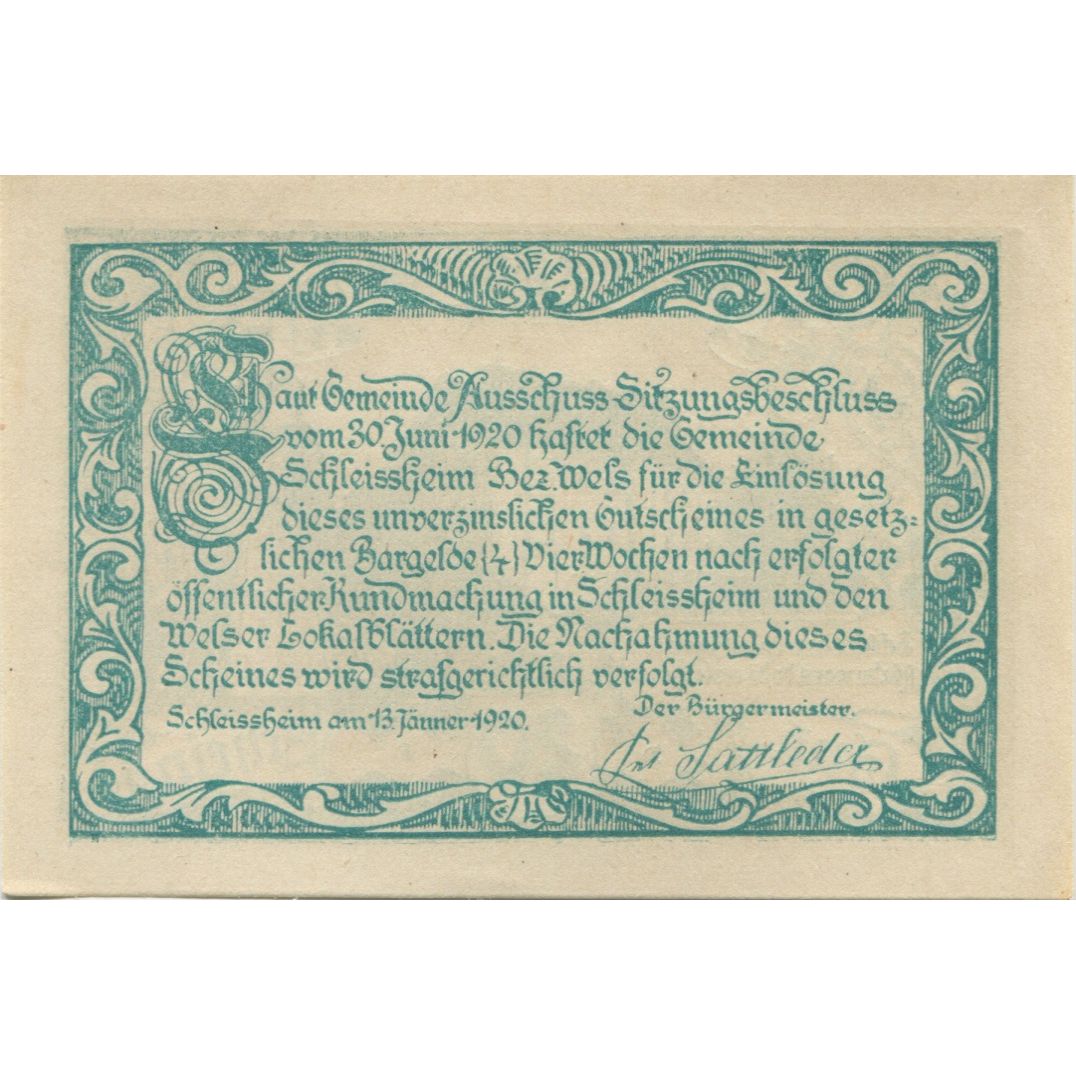 Laut Gemeinde Ausschuss-Sitzungsbeschluss
vom 30. Juni 1920 haftet die Gemeinde
Schleissheim Bez. Wels für die Einlösung
dieses unverzinslichen Gutscheines in gesetz-
lichen Bargelde {4} Vier Wochen nach erfolgter
öffentlicher Kundmachung in Schleissheim und den
Welser Lokalblättern. Die Nachahmung dieses
Scheines wird strafgerichtlich verfolgt.
Schleissheim am 13. Jänner 1920. Der Bürgermeister.
Sattleder